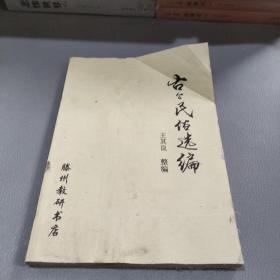 古今民俗选编
王其良 整编
滕州教研书店